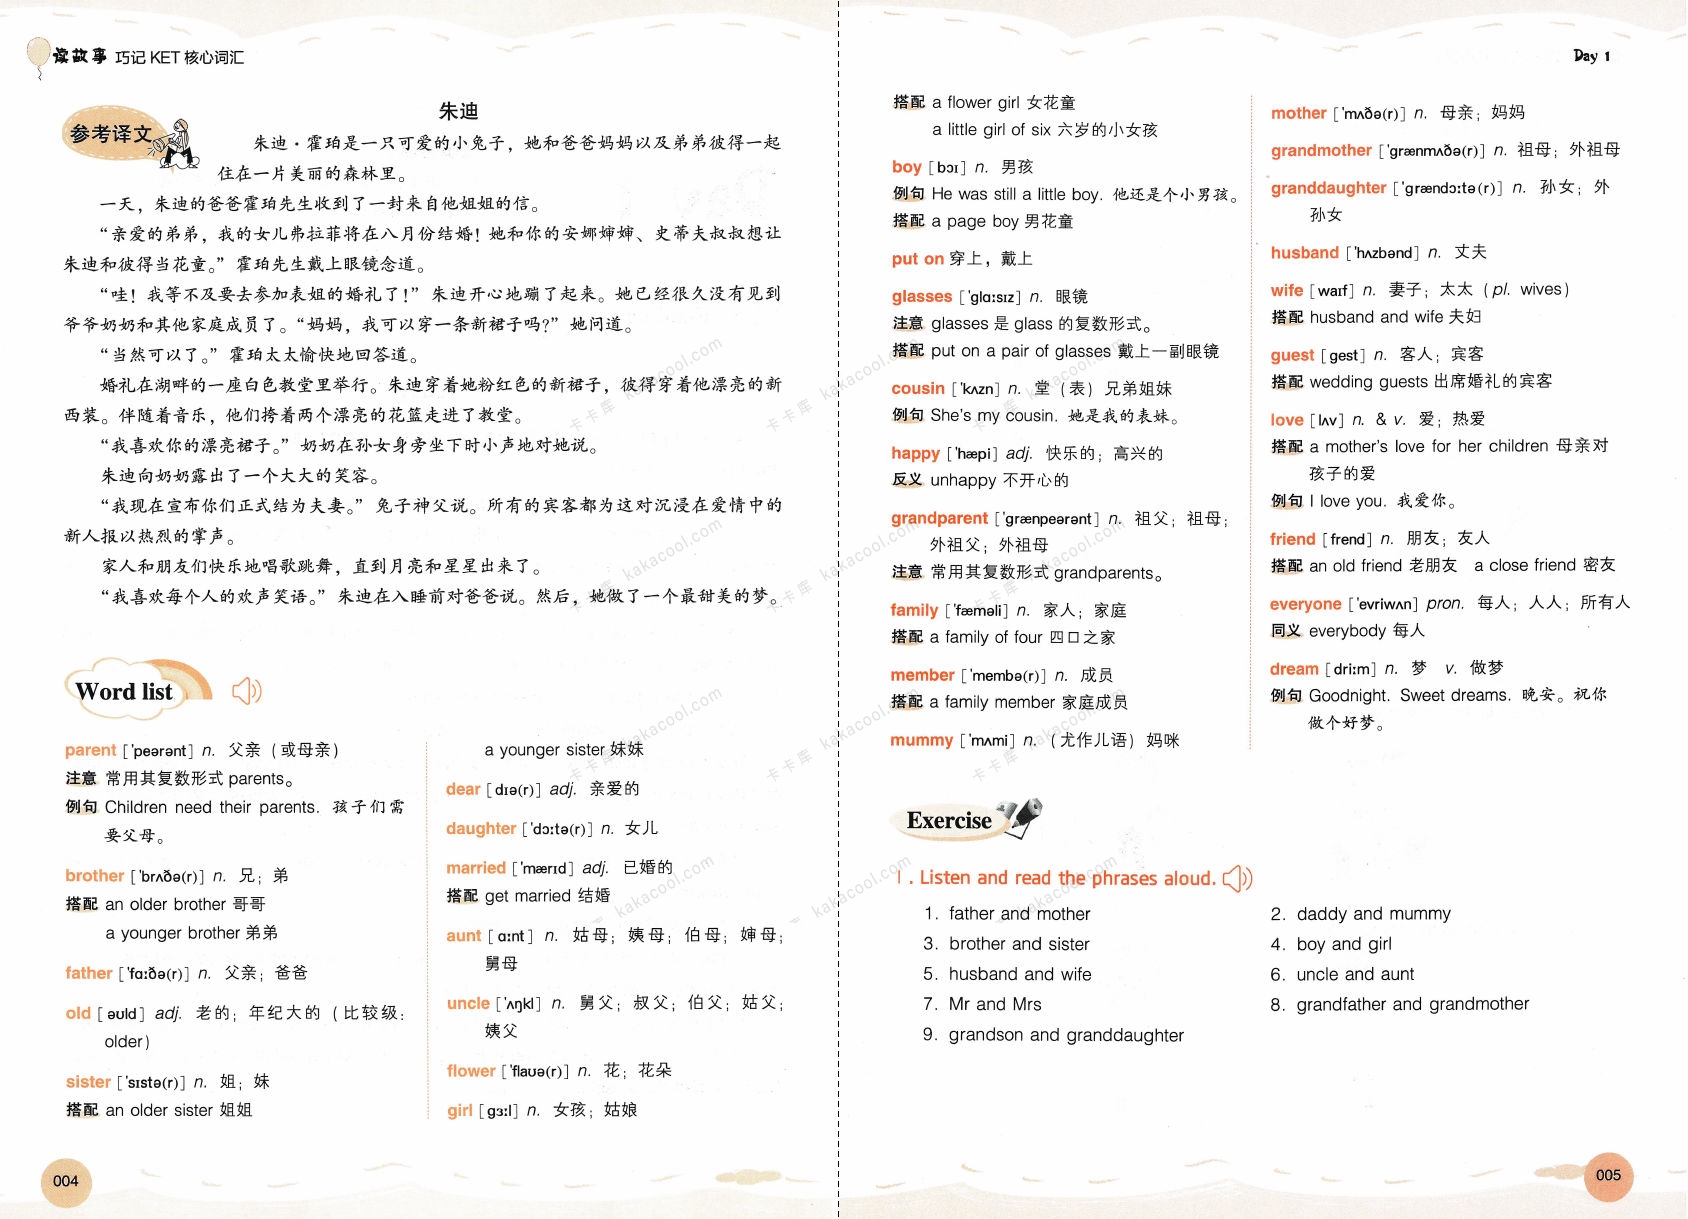 读故事 巧记 KET 核心词汇
参考译文
朱迪
朱迪·霍珀是一只可爱的小兔子，她和爸爸妈妈以及弟弟彼得一起
住在一片美丽的森林里。
一天，朱迪的爸爸霍珀先生收到了一封来自他姐姐的信。
“亲爱的弟弟，我的女儿弗拉菲将在八月份结婚！她和你的安娜婶婶、史蒂夫叔叔想让
朱迪和彼得当花童。”霍珀先生戴上眼镜念道。
“哇！我等不及要去参加表姐的婚礼了！”朱迪开心地蹦了起来。她已经很久没有见到
爷爷奶奶和其他家庭成员了。“妈妈，我可以穿一条新裙子吗？”她问道。
“当然可以了。”霍珀太太愉快地回答道。
婚礼在湖畔的一座白色教堂里举行。朱迪穿着她粉红色的新裙子，彼得穿着他漂亮的新
西装。伴随着音乐，他们挎着两个漂亮的花篮走进了教堂。
“我喜欢你的漂亮裙子。”奶奶在孙女身旁坐下时小声地对她说。
朱迪向奶奶露出了一个大大的笑容。
“我现在宣布你们正式结为夫妻。”兔子神父说。所有的宾客都为这对沉浸在爱情中的
新人报以热烈的掌声。
家人和朋友们快乐地唱歌跳舞，直到月亮和星星出来了。
“我喜欢每个人的欢声笑语。”朱迪在入睡前对爸爸说。然后，她做了一个最甜美的梦。
Word list
parent ['peərənt] n. 父亲（或母亲）
注意 常用其复数形式 parents。
例句 Children need their parents. 孩子们需
要父母。
brother ['brʌðə(r)] n. 兄；弟
搭配 an older brother 哥哥
a younger brother 弟弟
father ['fɑːðə(r)] n. 父亲；爸爸
old [əʊld] adj. 老的；年纪大的（比较级：
older）
sister ['sɪstə(r)] n. 姐；妹
搭配 an older sister 姐姐
a younger sister 妹妹
dear [dɪə(r)] adj. 亲爱的
daughter ['dɔːtə(r)] n. 女儿
married ['mærɪd] adj. 已婚的
搭配 get married 结婚
aunt [ɑːnt] n. 姑母；姨母；伯母；婶母；
舅母
uncle ['ʌŋkl] n. 舅父；叔父；伯父；姑父；
姨父
flower ['flaʊə(r)] n. 花；花朵
girl [ɡɜːl] n. 女孩；姑娘
004
Day 1
搭配 a flower girl 女花童
a little girl of six 六岁的小女孩
boy [bɔɪ] n. 男孩
例句 He was still a little boy. 他还是个小男孩。
搭配 a page boy 男花童
put on 穿上，戴上
glasses ['ɡlɑːsɪz] n. 眼镜
注意 glasses 是 glass 的复数形式。
搭配 put on a pair of glasses 戴上一副眼镜
cousin ['kʌzn] n. 堂（表）兄弟姐妹
例句 She's my cousin. 她是我的表妹。
happy ['hæpi] adj. 快乐的；高兴的
反义 unhappy 不开心的
grandparent ['ɡrænpeərənt] n. 祖父；祖母；
外祖父；外祖母
注意 常用其复数形式 grandparents。
family ['fæməli] n. 家人；家庭
搭配 a family of four 四口之家
member ['membə(r)] n. 成员
搭配 a family member 家庭成员
mummy ['mʌmi] n.（尤作儿语）妈咪
mother ['mʌðə(r)] n. 母亲；妈妈
grandmother ['ɡrænmʌðə(r)] n. 祖母；外祖母
granddaughter ['ɡrændɔːtə(r)] n. 孙女；外
孙女
husband ['hʌzbənd] n. 丈夫
wife [waɪf] n. 妻子；太太（pl. wives）
搭配 husband and wife 夫妇
guest [ɡest] n. 客人；宾客
搭配 wedding guests 出席婚礼的宾客
love [lʌv] n. & v. 爱；热爱
搭配 a mother's love for her children 母亲对
孩子的爱
例句 I love you. 我爱你。
friend [frend] n. 朋友；友人
搭配 an old friend 老朋友 a close friend 密友
everyone ['evriwʌn] pron. 每人；人人；所有人
同义 everybody 每人
dream [driːm] n. 梦 v. 做梦
例句 Goodnight. Sweet dreams. 晚安。祝你
做个好梦。
Exercise
Ⅰ. Listen and read the phrases aloud.
1. father and mother
2. daddy and mummy
3. brother and sister
4. boy and girl
5. husband and wife
6. uncle and aunt
7. Mr and Mrs
8. grandfather and grandmother
9. grandson and granddaughter
005
卡卡库 kakacool.com